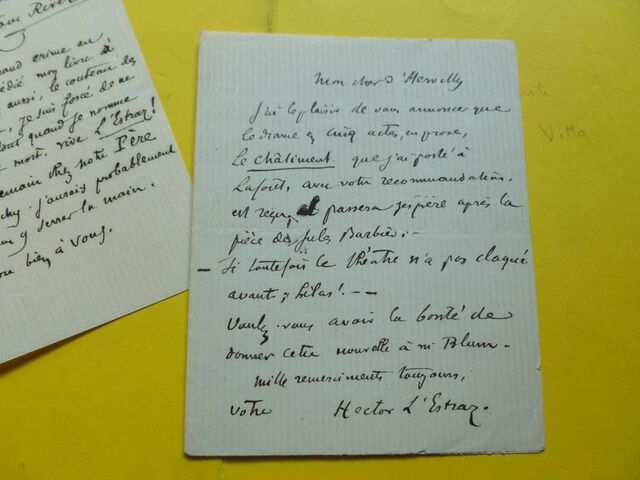 mon cher d'Hervilly
j'ai le plaisir de vous annoncer que
le drame en cinq actes, en prose,
Le Châtiment que j'ai porté à
avec votre recommandation,
est reçu, et passera j'espère après la
pièce de Jules Barbier; -
- Si toutefois le théâtre n'a pas claqué
avant; hélas! - -
Voulez-vous avoir la bonté de
donner cette nouvelle à mr Blum -
mille remerciments toujours,
votre Hector L'Estraz.
crime au
dédié mon livre à
aussi, le couteau des
je suis forcé de me
quand je nomme
mort, vive L'Estraz!
chez notre Père
j'aurais probablement
y serrer la main.
bien à vous.
Villa